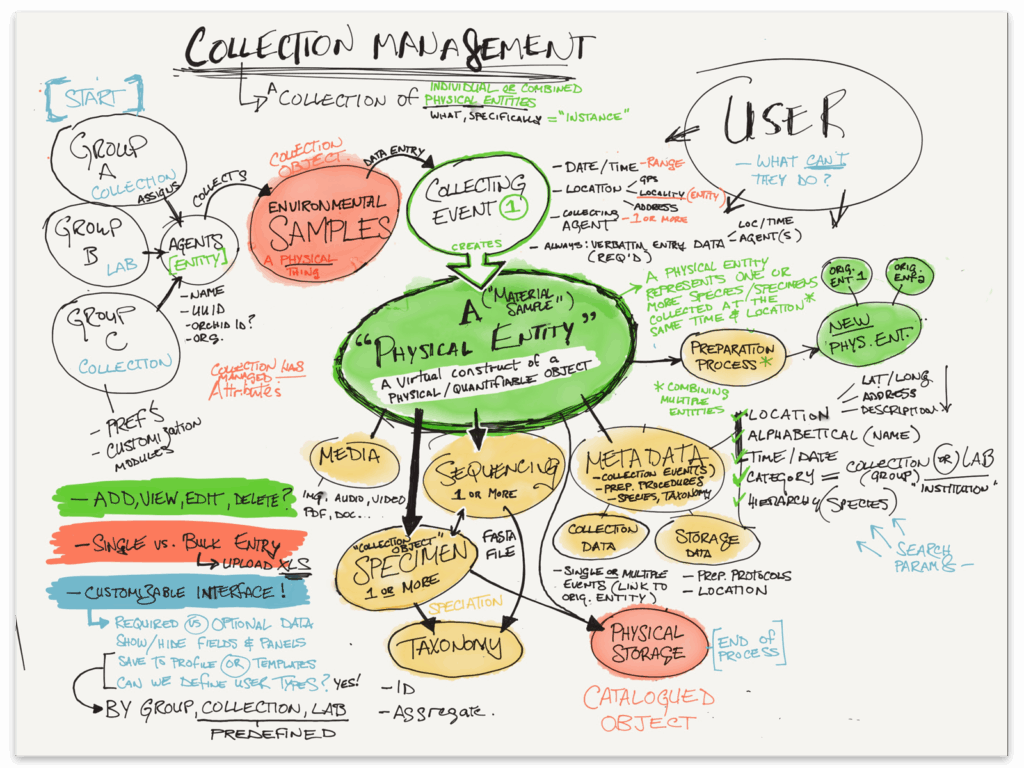 COLLECTION MANAGEMENT
A COLLECTION OF INDIVIDUAL OR COMBINED
PHYSICAL ENTITIES
WHAT, SPECIFICALLY = "INSTANCE"
[START]
GROUP
A
COLLECTION
ASSIGNS
GROUP
B
LAB
GROUP
C
COLLECTION
- PREF'S
- CUSTOMIZATION
MODULES
AGENTS
[ENTITY]
- NAME
- UUID
- ORCHID ID?
- ORG.
COLLECTS
COLLECTION HAS
MANAGED
Attributes
COLLECTION
OBJECT
ENVIRONMENTAL
SAMPLES
A PHYSICAL
THING
DATA ENTRY
COLLECTING
EVENT 1
CREATES
- DATE/TIME - RANGE
- LOCATION
GPS
LOCALITY (ENTITY)
ADDRESS
- COLLECTING
AGENT
- 1 OR MORE
- ALWAYS: VERBATIM ENTRY DATA
(REQ'D)
LOC/TIME
AGENT(S)
USER
- WHAT CAN'T
THEY DO?
A ("MATERIAL
SAMPLE")
"PHYSICAL ENTITY"
A VIRTUAL CONSTRUCT OF A
PHYSICAL/QUANTIFIABLE OBJECT
A PHYSICAL ENTITY
REPRESENTS ONE OR
MORE SPECIES/SPECIMENS
COLLECTED AT THE
SAME TIME & LOCATION*
PREPARATION
PROCESS*
* COMBINING
MULTIPLE
ENTITIES
ORIG.
ENT 1
ORIG.
ENT 2
NEW
PHYS. ENT.
MEDIA
IMG. AUDIO, VIDEO
PDF, DOC....
SEQUENCING
1 OR MORE
FASTA
FILE
"COLLECTION OBJECT"
SPECIMEN
1 OR MORE
SPECIATION
TAXONOMY
- ID
- Aggregate.
METADATA
- COLLECTION EVENT(S)
- PREP. PROCEDURES
- SPECIES, TAXONOMY
COLLECTION
DATA
- SINGLE OR MULTIPLE
EVENTS (LINK TO
ORIG. ENTITY)
STORAGE
DATA
- PREP. PROTOCOLS
- LOCATION
PHYSICAL
STORAGE
[END OF
PROCESS]
CATALOGUED
OBJECT
LOCATION
LAT/LONG.
ADDRESS
DESCRIPTION
ALPHABETICAL (NAME)
TIME/DATE
CATEGORY = COLLECTION (OR) LAB
(GROUP) INSTITUTION"
HIERARCHY (SPECIES)
SEARCH
PARAMS -
- ADD, VIEW, EDIT, DELETE?
- SINGLE VS. BULK ENTRY
UPLOAD XLS
- CUSTOMIZABLE INTERFACE!
REQUIRED VS OPTIONAL DATA
SHOW/HIDE FIELDS & PANELS
SAVE TO PROFILE OR TEMPLATES
CAN WE DEFINE USER TYPES? YES!
BY GROUP, COLLECTION, LAB
PREDEFINED